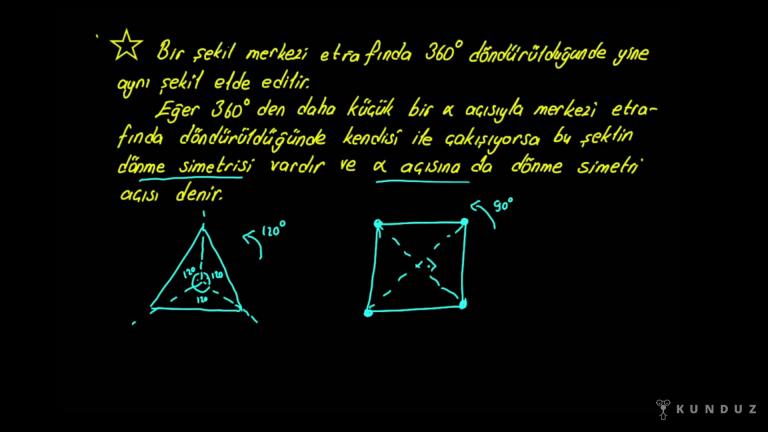 Bir şekil merkezi etrafında 360° döndürüldüğünde yine
aynı şekil elde edilir.
Eğer 360° den daha küçük bir α açısıyla merkezi etra-
fında döndürüldüğünde kendisi ile çakışıyorsa bu şeklin
dönme simetrisi vardır ve α açısına da dönme simetri
açısı denir.
120°
90°
120 120
120
KUNDUZ